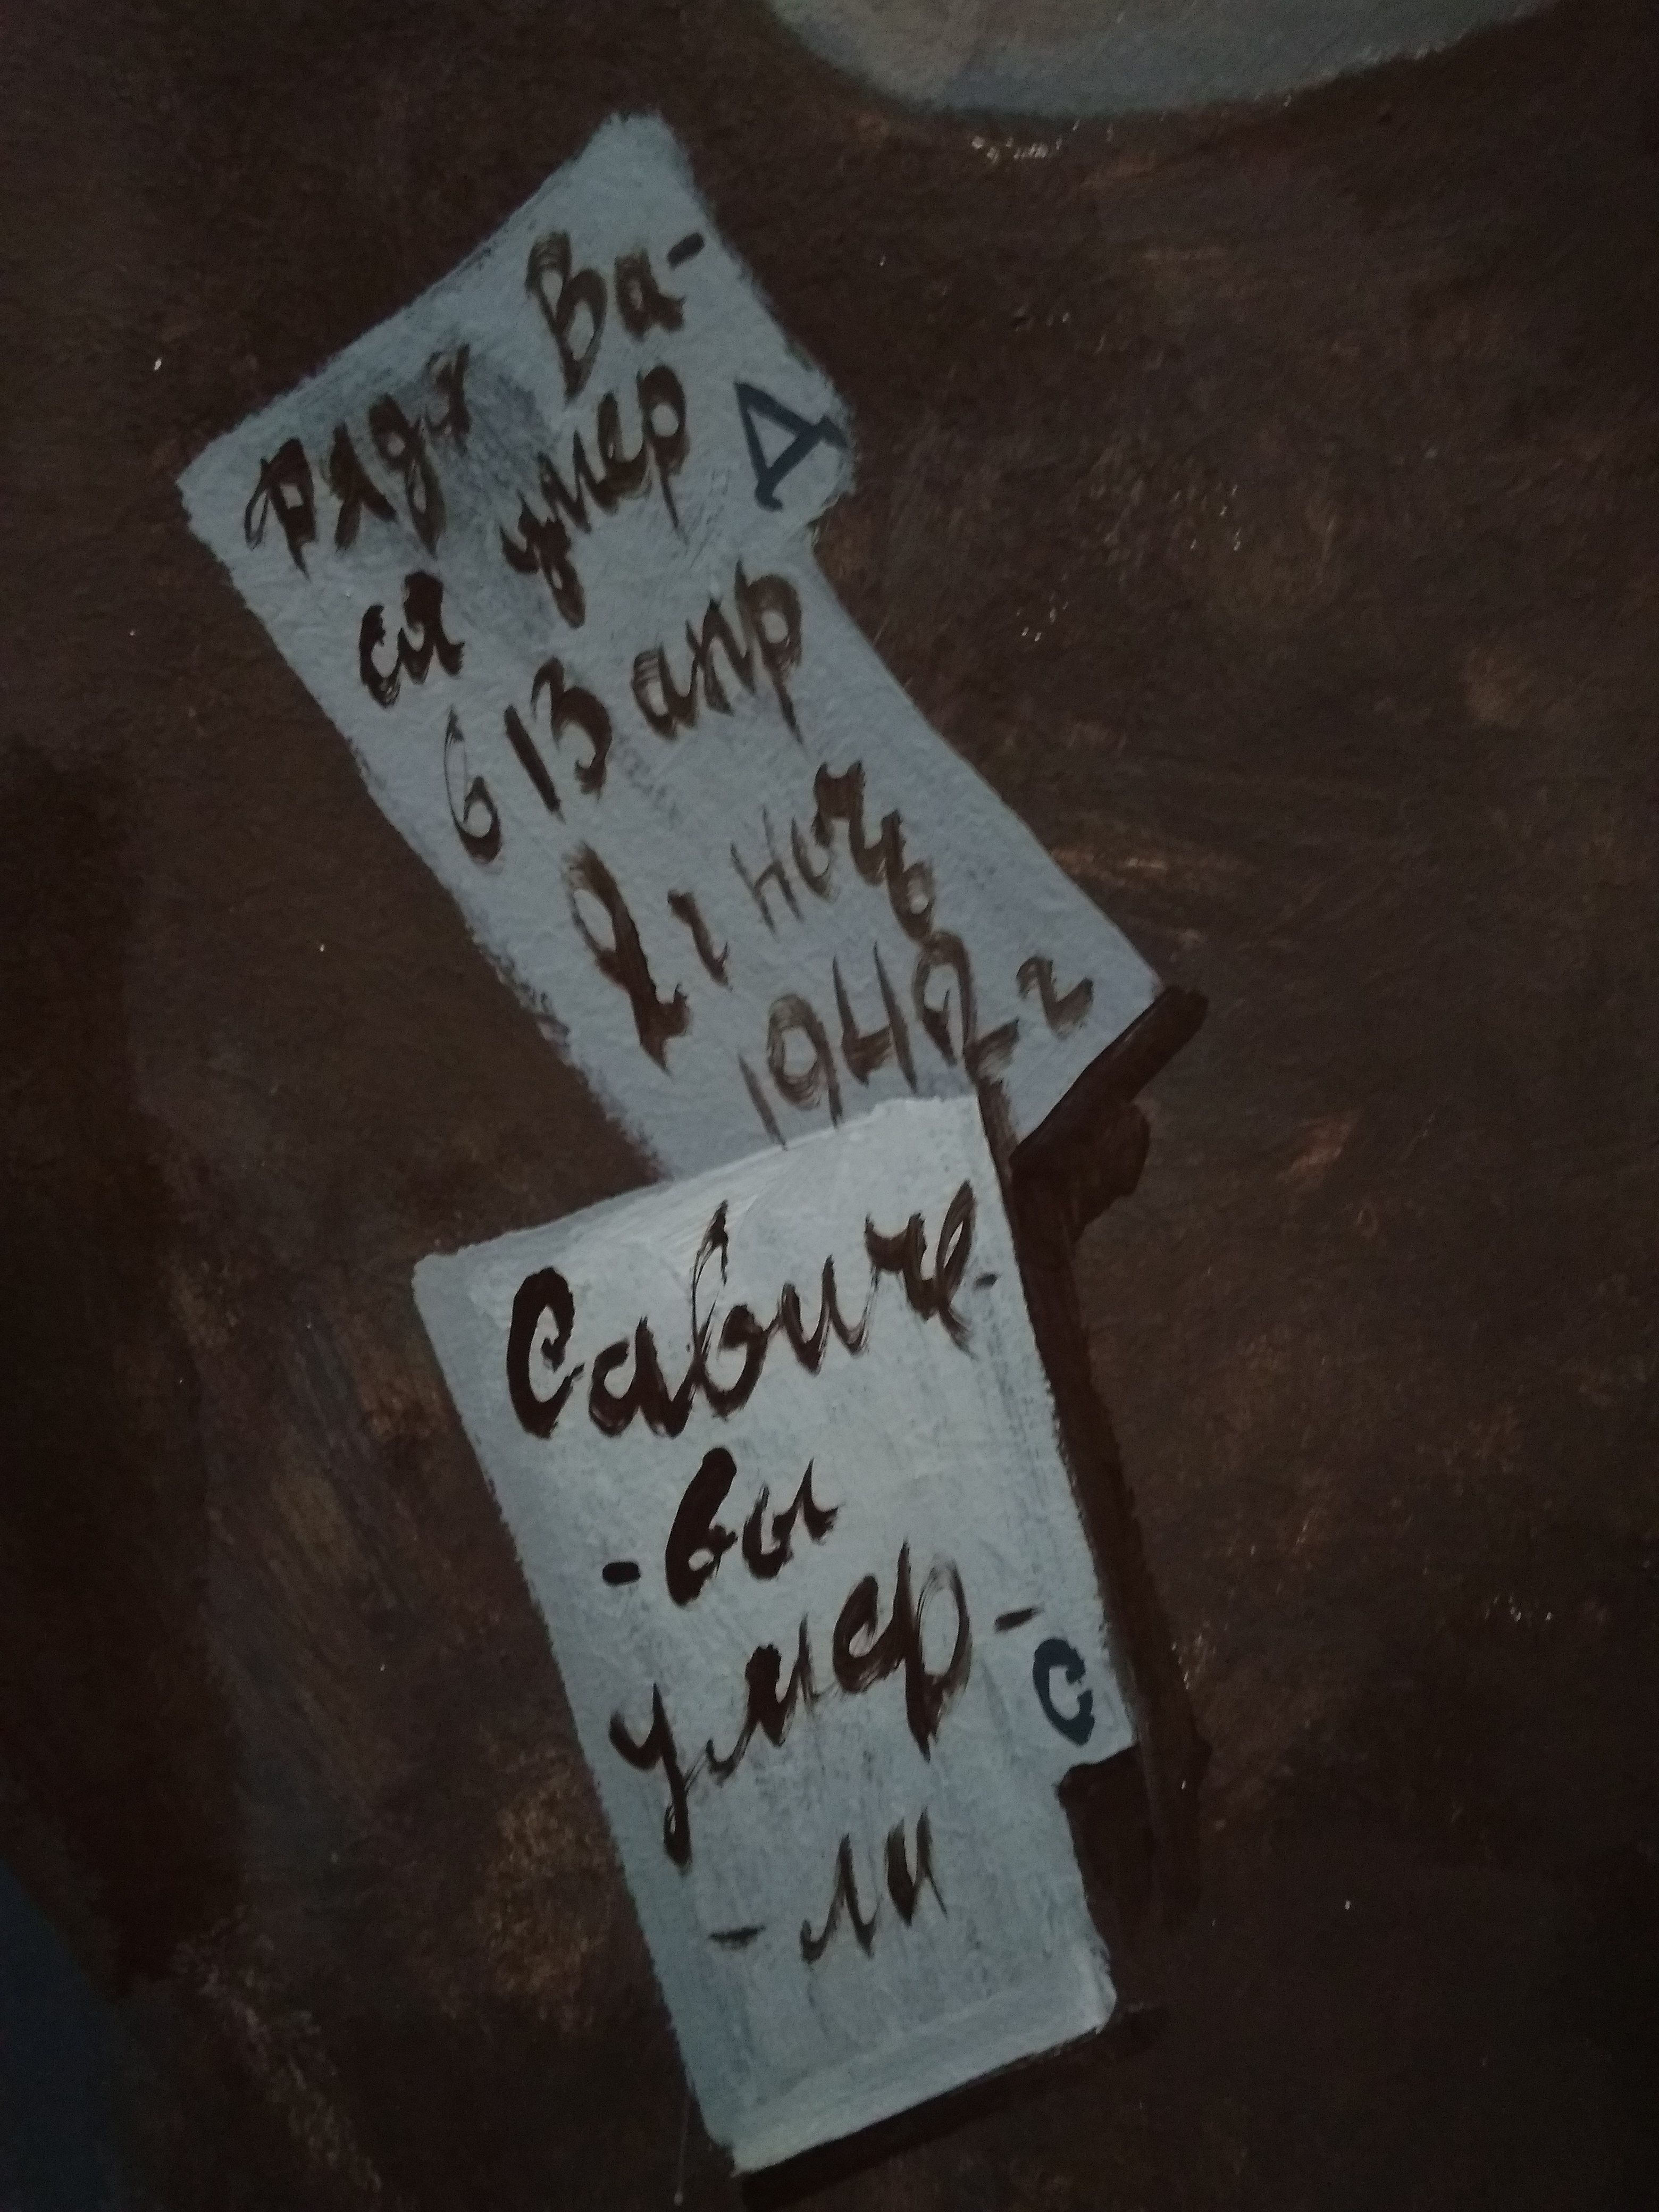 Дядя Ва-
ся умер
Д
в 13 апр
2 ч ночь
1942 г
Савиче-
-вы
умер-
С
-ли